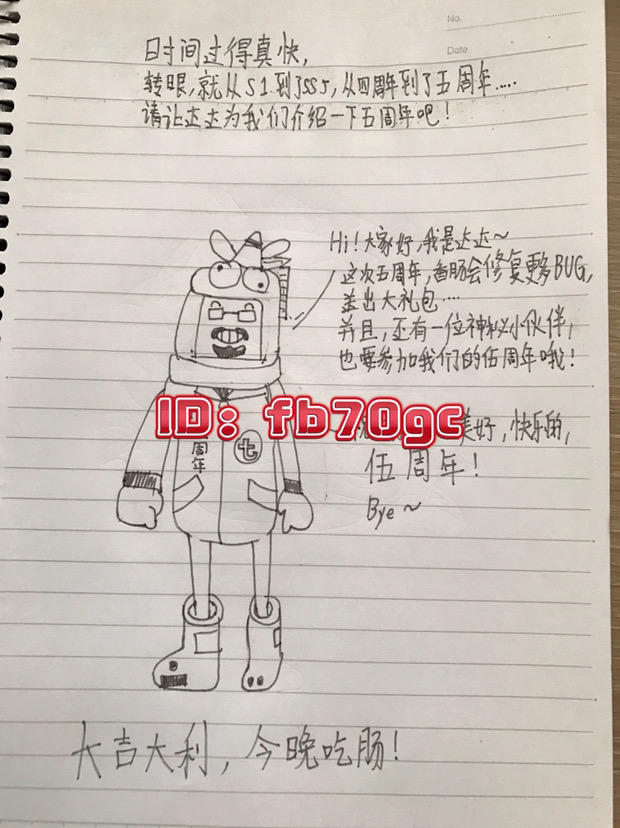 No.
Date
日时间过得真快,
转眼,就从S1到了SS5,从四周年到了五周年……
请让达达为我们介绍一下五周年吧!
Hi!大家好,我是达达~
这次五周年,香肠会修复更多BUG,
并出大礼包……
并且,还有一位神秘小伙伴,
也要参加我们的伍周年哦!
ID:fb70gc
美好,快乐的,
伍周年!
Bye~
周年
七
大吉大利,今晚吃肠!